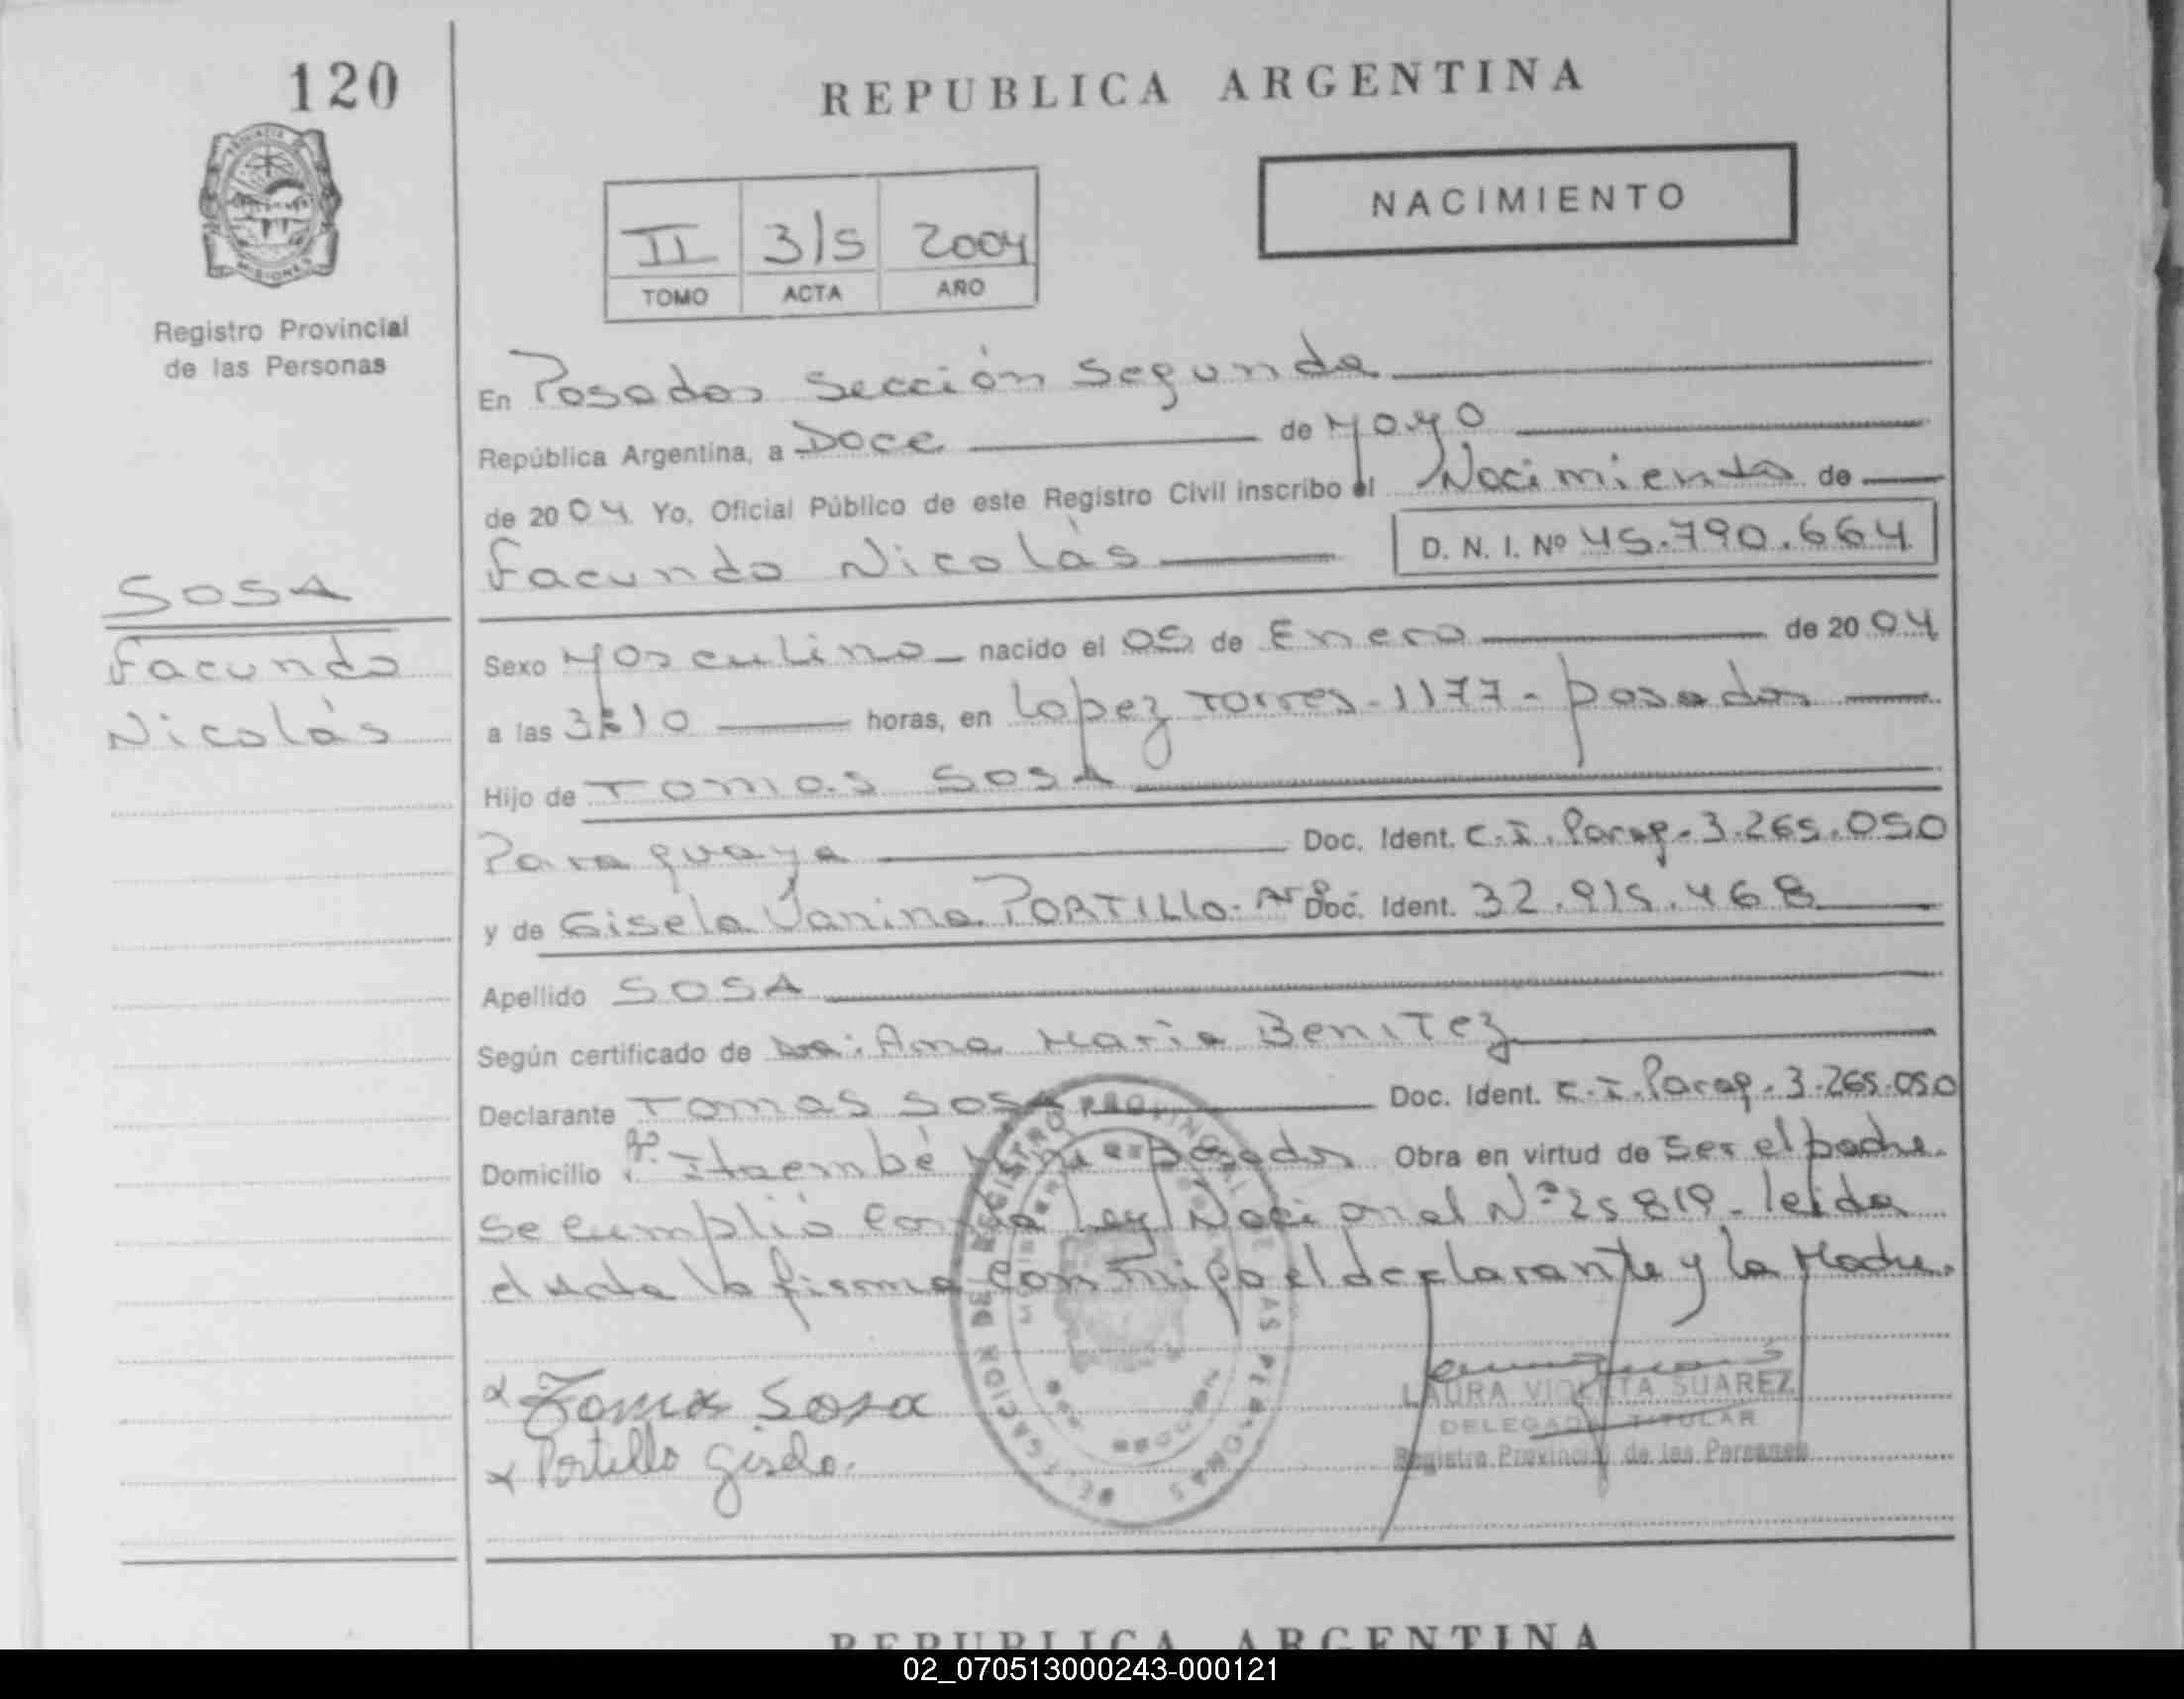 120
REPUBLICA ARGENTINA
NACIMIENTO
II 3/5 2004
TOMO ACTA AÑO
Registro Provincial
de las Personas
En Posadas Sección Segunda
República Argentina, a Doce de Mayo
de 2004 Yo, Oficial Público de este Registro Civil inscribo el Nacimiento de
Facundo Nicolás D. N. I. Nº 45.790.664
SOSA
Facundo
Nicolás
Sexo Masculino nacido el 05 de Enero de 2004
a las 3:10 horas, en Lopez Torres-1177-posadas
Hijo de Tomas SOSA
Paraguaya Doc. Ident. C.I. Parag. 3.265.050
y de Gisela Vanina PORTILLO. Doc. Ident. 32.915.468
Apellido SOSA
Según certificado de Ana Maria Benitez
Declarante Tomas SOSA Doc. Ident. C.I. Parag. 3.265.050
Domicilio Itaembé posadas Obra en virtud de ser el padre.
Se cumplió con la Ley Nacional Nº 25819. leida
el acta la firma conmigo el declarante y la Madre.
Toma Sosa
Portillo gisela.
LAURA VIOLETA SUAREZ
DELEGADA TITULAR
Registro Provincial de las Personas
REPUBLICA ARGENTINA
02_070513000243-000121